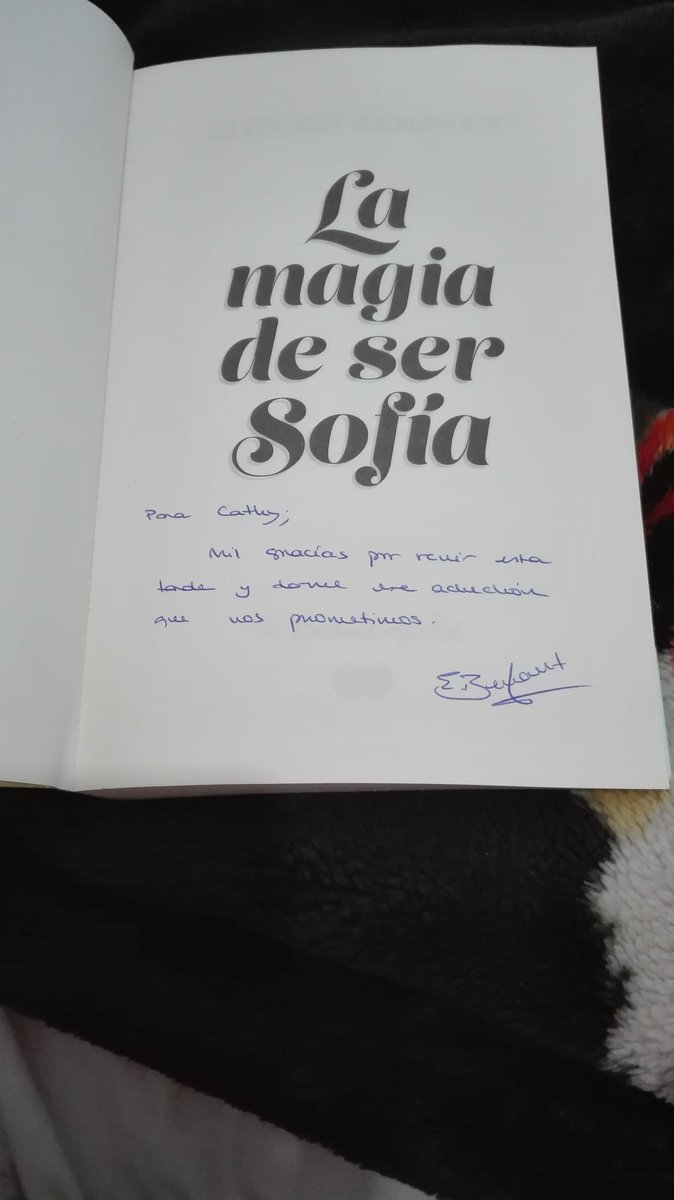 La
magia
de ser
Sofía
Para Cathy;
Mil gracias por venir esta
tarde y darme ese achuchón
que nos prometimos.
E. Benavent